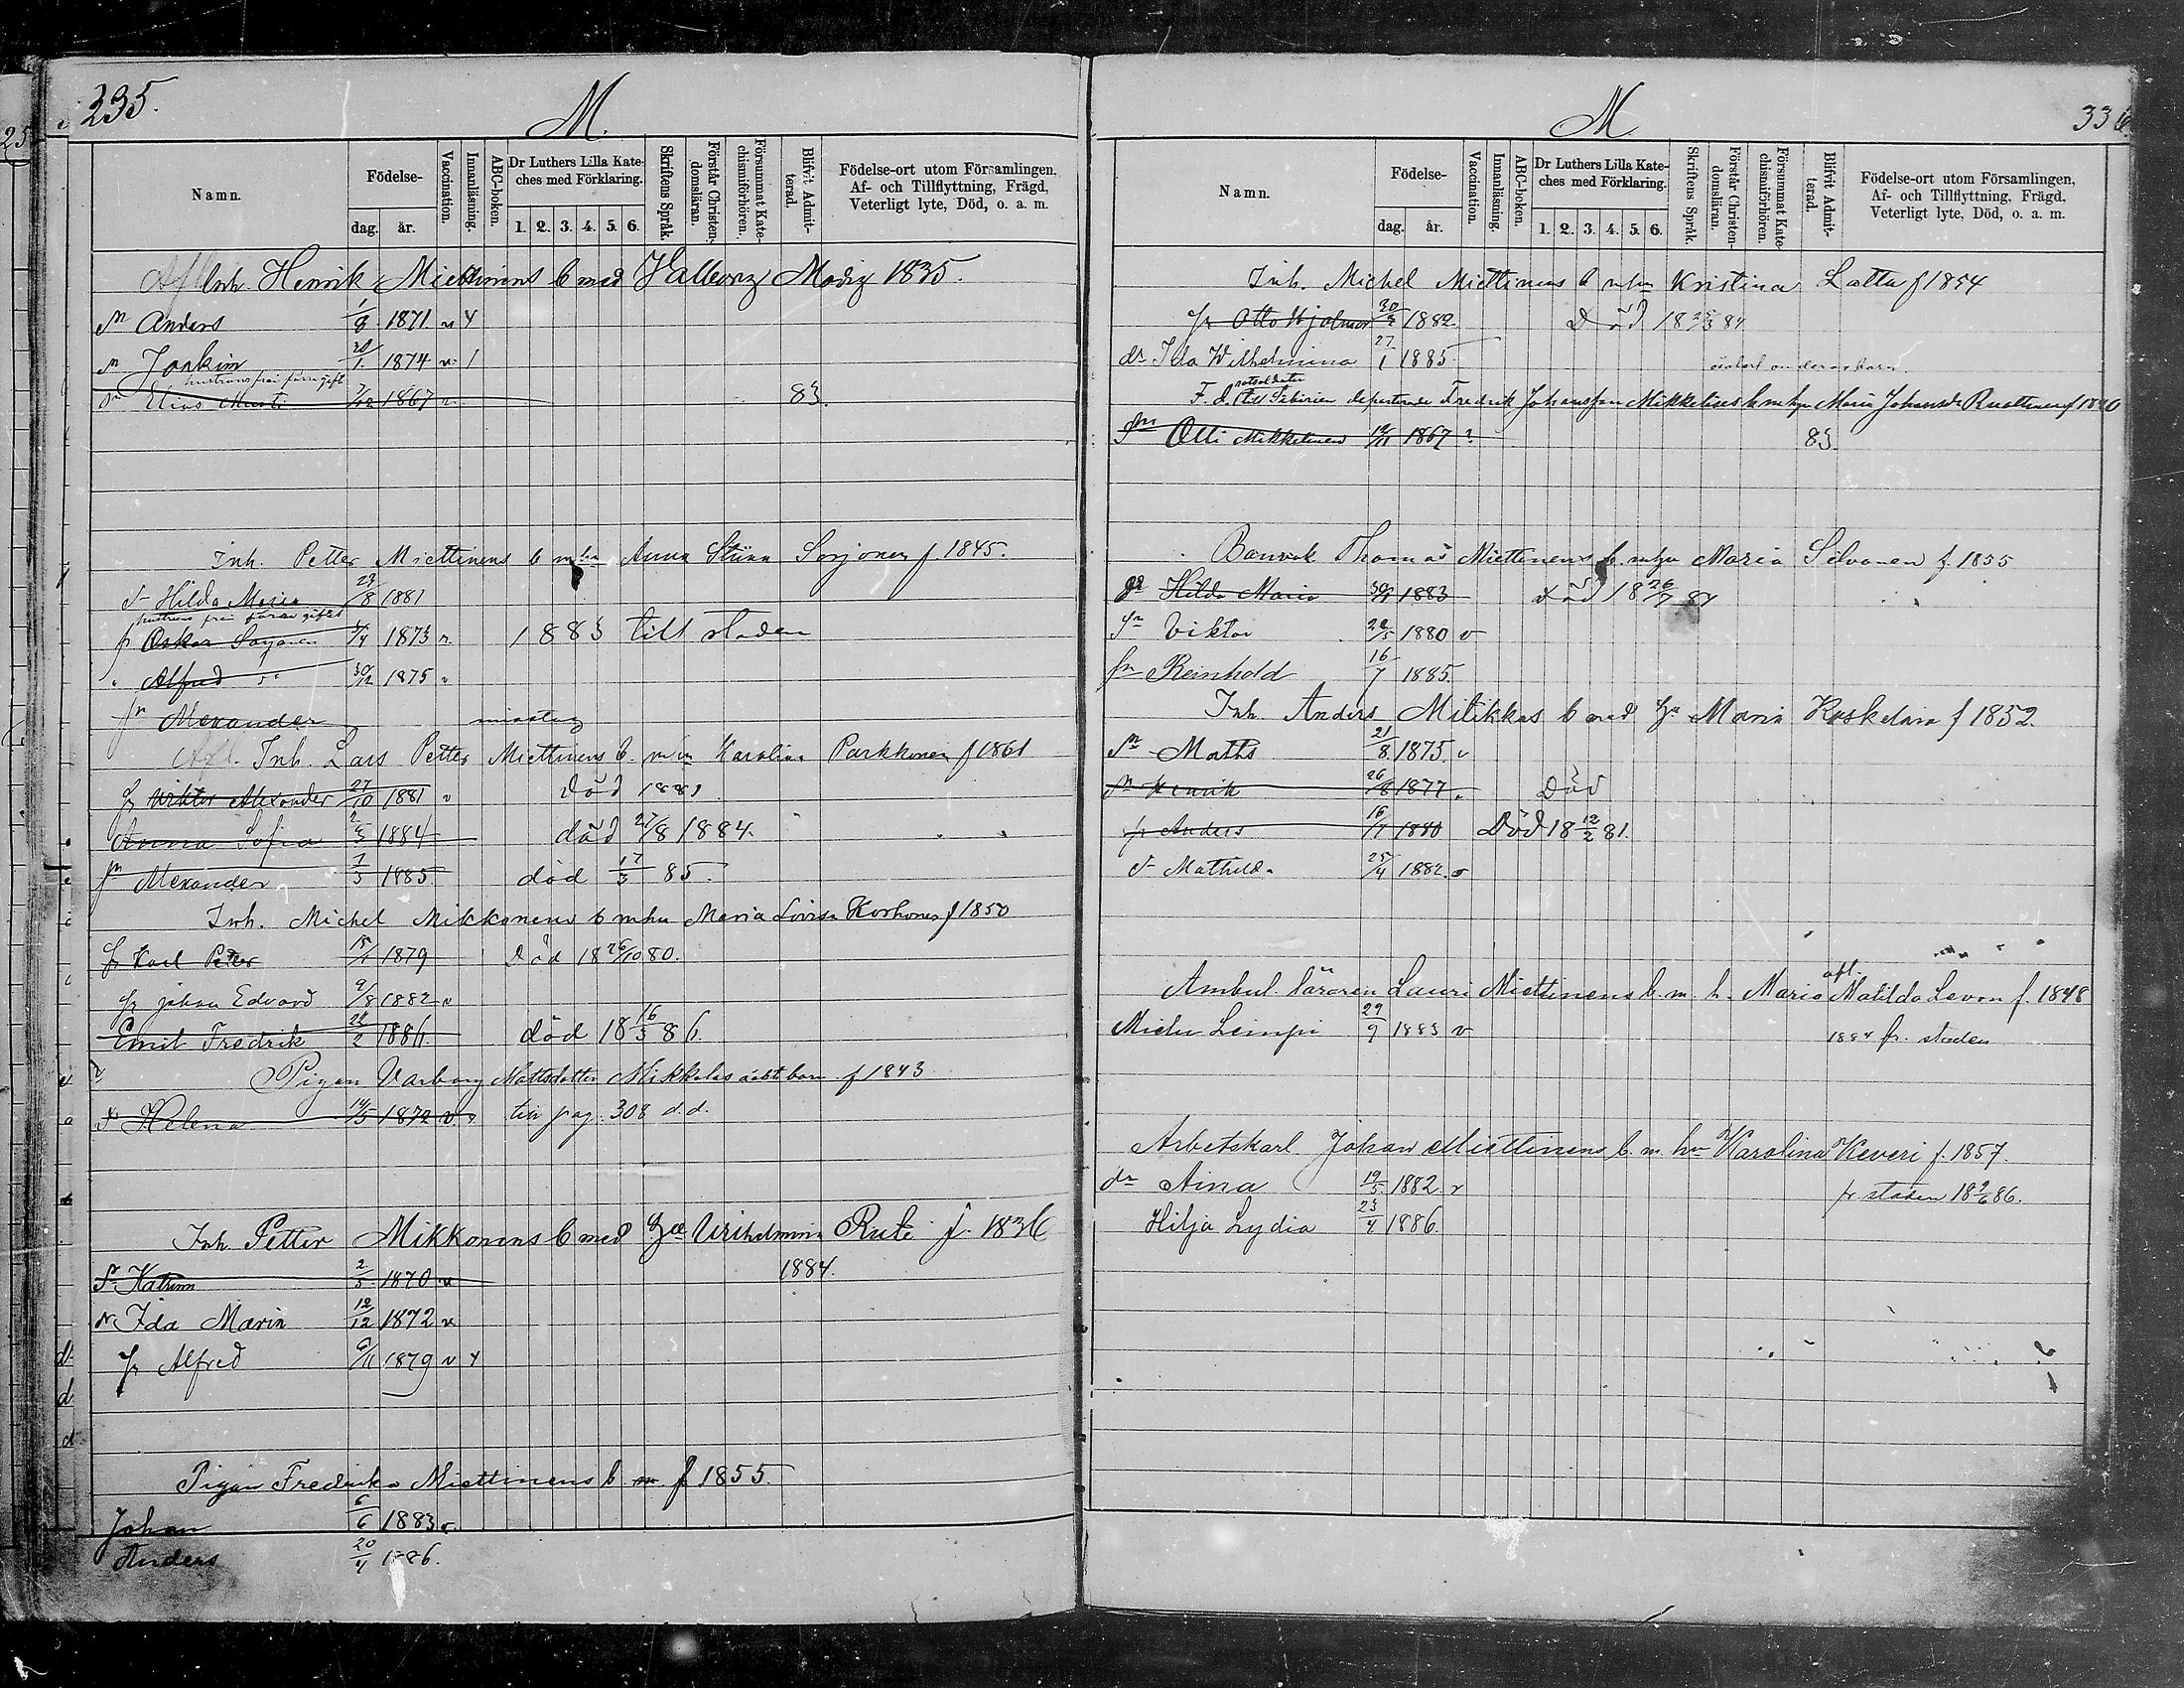 235.
M.
Namn.
Födelse-
dag.
år.
Vaccination.
Innanläsning.
ABC-boken.
Dr Luthers Lilla Kate-
ches med Förklaring.
1. 2. 3. 4. 5. 6.
Skriftens Språk.
Förstår Christen-
domsläran.
Försummat Kate-
chismiförhören.
Blifvit Admit-
terad.
Födelse-ort utom Församlingen.
Af- och Tillflyttning, Frägd,
Veterligt lyte, Död, o. a. m.
Inh. Henrik Miettinens b med 1835.
Sn Anders 1/8 1871 v
Sn Joakim 1874 v 1
hustruns från förra gift
Sn Elias 7/12 1867 v 83.
Inh. Petter Miettinens b m hu Anna Stiina Sorjonen f. 1845.
Hilda Maria 23/8 1881
hustruns från förra giftet
Oskar Sorjonen 1873 v 1883 till staden
" Alfred " 30/12 1875 v
Sn Alexander
Afl. Inh. Lars Petter Miettinens b. m hu Karolina Parkkonen f 1861
Viktor Alexander 27/10 1881 v Död 1881
Anna Sofia 2/5 1884 död 27/8 1884.
Sn Alexander 7/3 1885 död 17/3 85.
Inh. Michel Mikkonens b m hu Maria Lovisa Korhonen f 1850
Karl Petter 1879 Död 18 26/10 80.
Johan Edvard 9/8 1882 v
Emil Fredrik 22/2 1886. död 18 16/3 86.
Pigan Varborg Mattsdotter Mikkolas b oäkt barn f 1843
Helena 14/5 1872 v till pag. 308 d.d.
Inh. Petter Mikkonens b med Hu Wilhelmina f. 1836
Katrina 2/5 1870 v 1884.
Ida Maria 12/12 1872 v
Alfred 9/11 1879 v
Pigan Fredrika Miettinens b f 1855.
Johan 6/6 1883 v
Anders 20/4 1886.
M
336
Namn.
Födelse-
dag.
år.
Vaccination.
Innanläsning.
ABC-boken.
Dr Luthers Lilla Kate-
ches med Förklaring.
1. 2. 3. 4. 5. 6.
Skriftens Språk.
Förstår Christen-
domsläran.
Försummat Kate-
chismiförhören.
Blifvit Admit-
terad.
Födelse-ort utom Församlingen,
Af- och Tillflyttning, Frägd,
Veterligt lyte, Död, o. a. m.
Inh. Michel Miettinens b m hu Kristina Latta f 1854
Otto Hjalmar 1882. Död
dr Ida Wilhelmina 27/1 1885
F. d. till Sibirien deporterade Fredrik Johansson Mikkelises b m hu Maria Johansdr
Sn Olli Mikkelinen 1867 83.
Banvak. Thomas Miettinens b. m hu Maria Silvonen f. 1855
Hilda Maria 1883 död 18 26/7 84
Sn Viktor 22/5 1880 v
Sn Reinhold 16/7 1885.
Inh. Anders Mitikkas b med Hu Maria f 1852.
Sn Maths 21/8 1875. v
Sn Henrik 26/8 1877 Död
Anders 1880 Död 18 12/2 81.
Mathilda 25/4 1882. v
Ambul. läraren Lauri Miettinens b. m. h. Maria Matilda Levon f. 1848
Lempi 29/9 1883 v 1884 fr. staden
Arbetskarl Johan Miettinens b. m. hu Karolina Keveri f. 1857.
dr Aina 19/5 1882 v fr staden 18 9/6 86.
Hilja Lydia 23/4 1886.